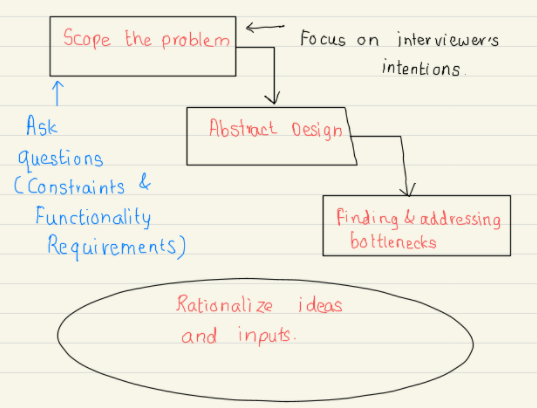 Scope the problem
Focus on interviewer's
intentions.
Ask
questions
(Constraints &
Functionality
Requirements)
Abstract Design
Finding & addressing
bottlenecks
Rationalize ideas
and inputs.